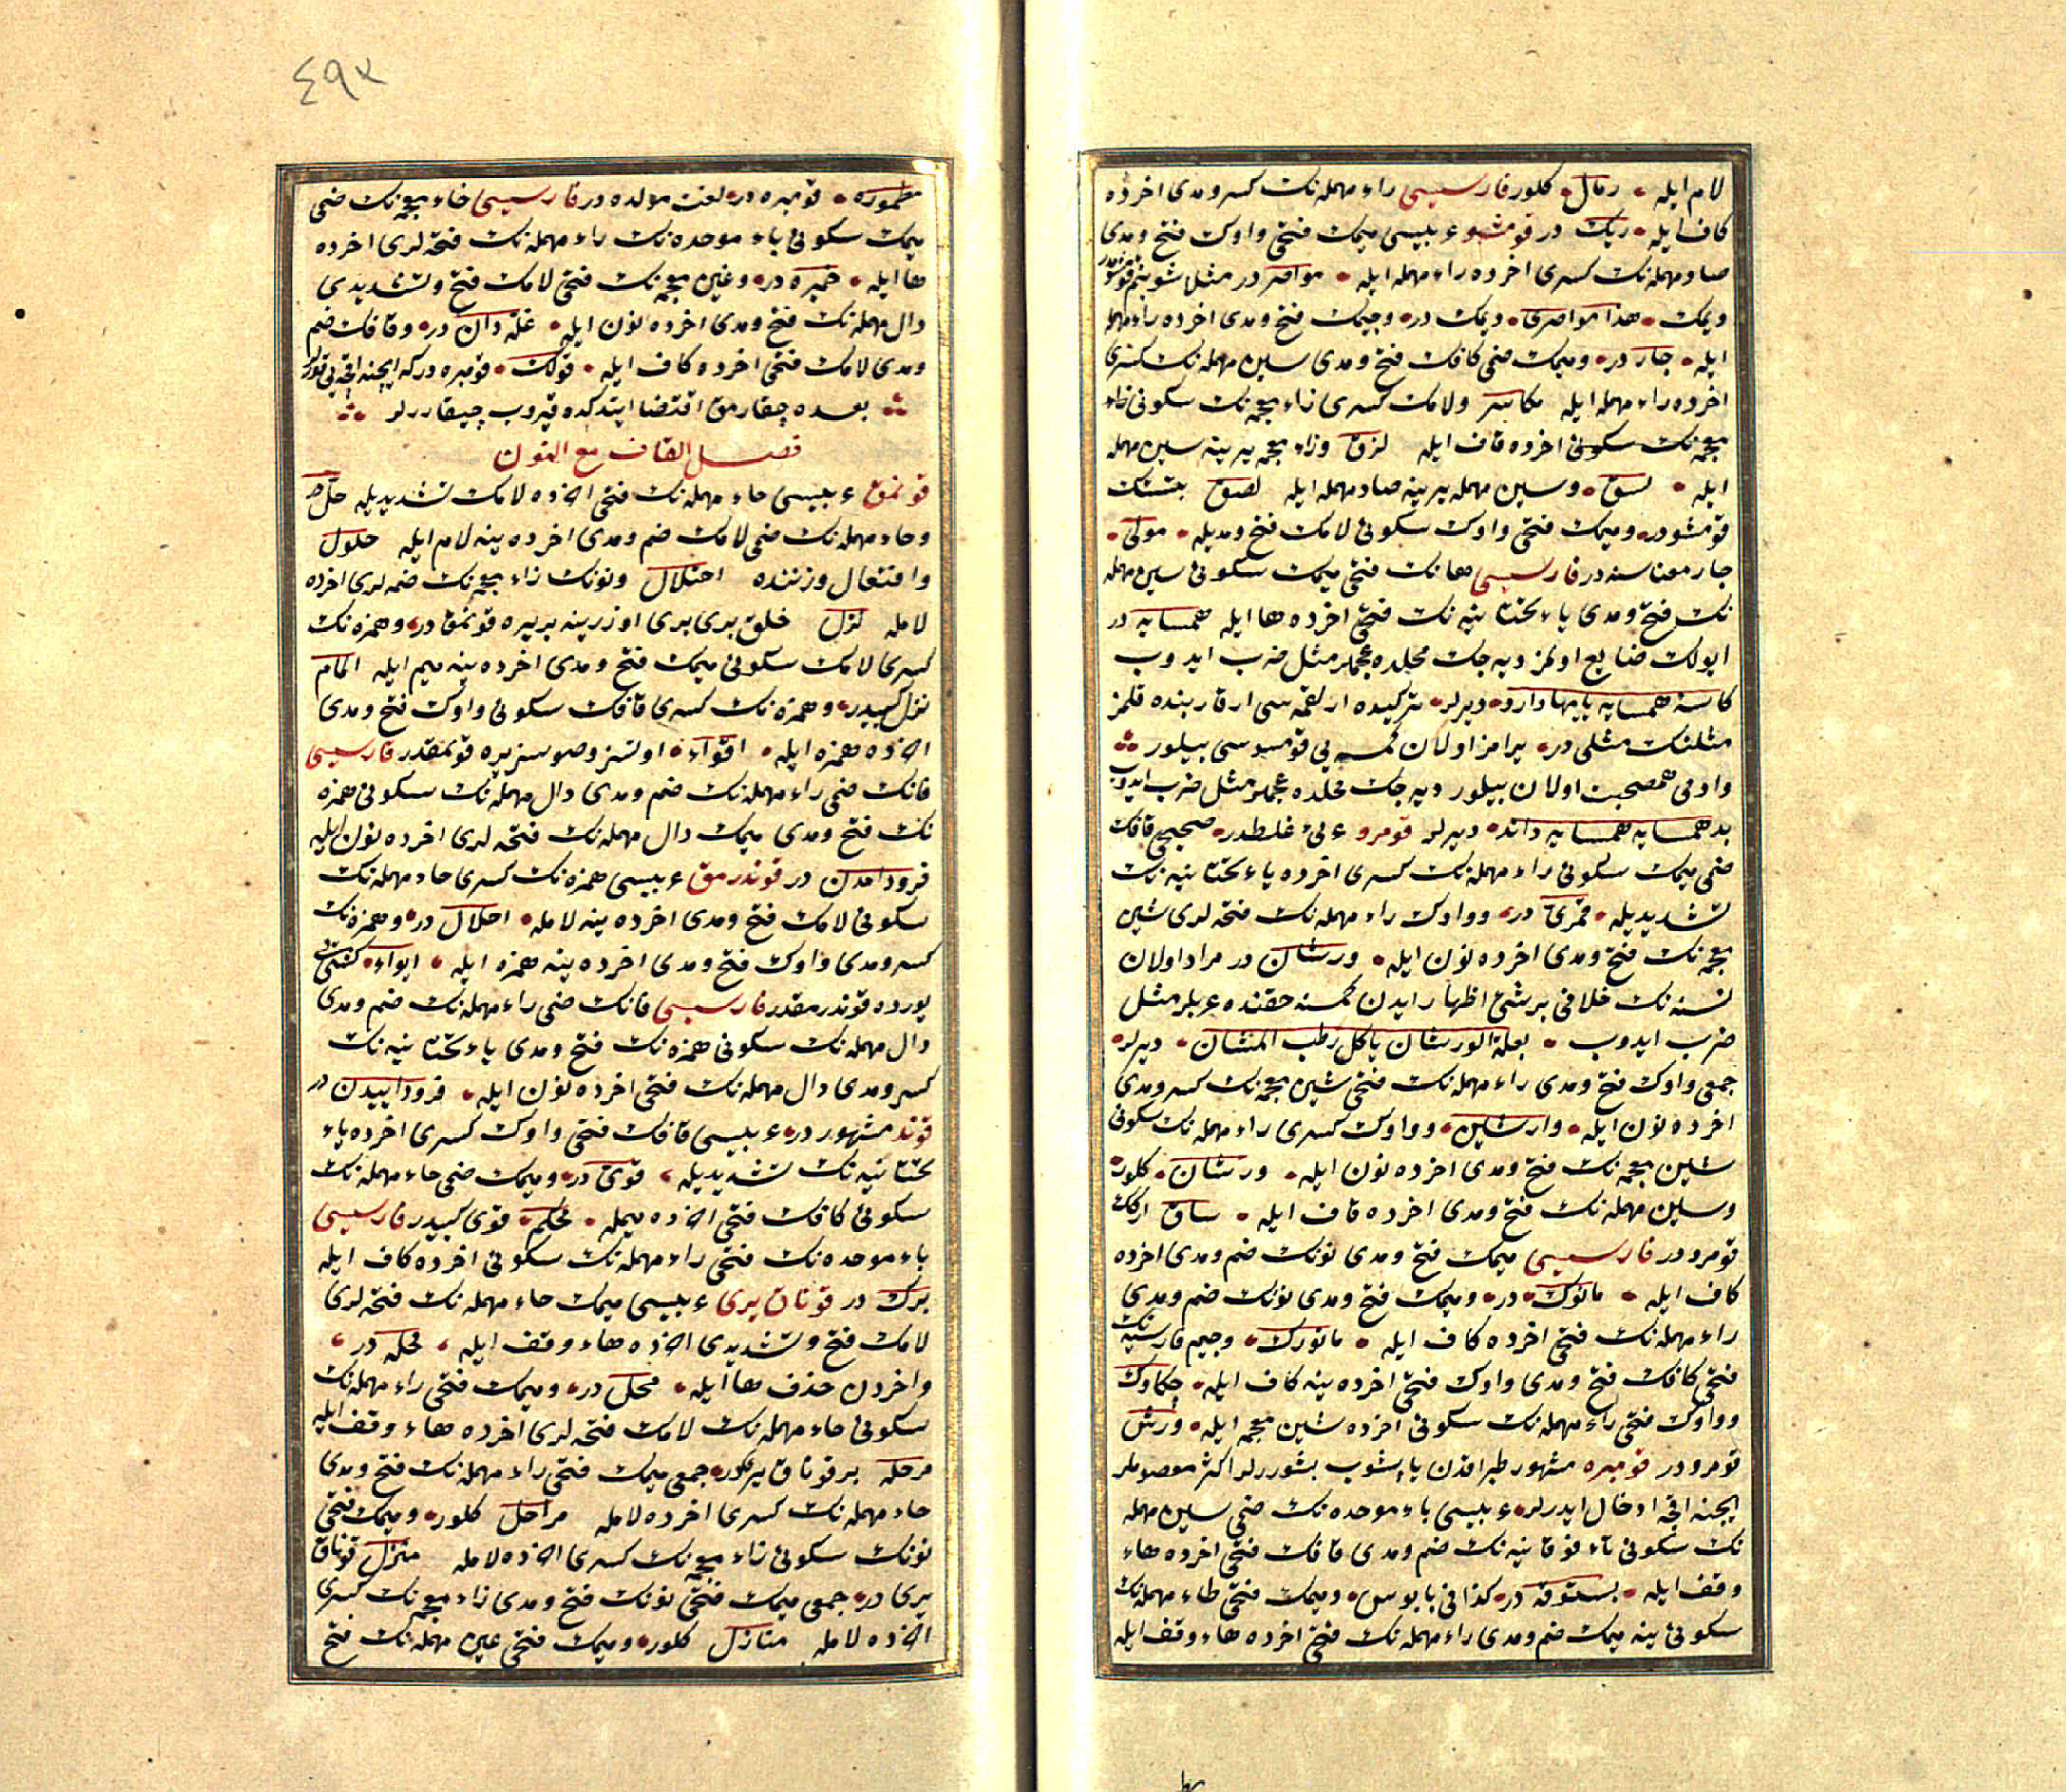 لام ایله رمال کلور فارسیسی راء مهمله نك کسر و مدی اخرده
کاف ایله ریك در قومشو عربیسی میمك فتحی واوك فتح و مدی
صاد مهمله نك کسری اخرده راء مهمله ایله مواصر در مثل شو بنم قومشومدر
دیمك هذا مواصری دیمك در وجیمك فتح و مدی اخرده راء مهمله
ایله جار در ومیمك ضمی کافك فتح و مدی سین مهمله نك کسری
اخرده راء مهمله ایله مکاسر ولامك کسری زاء معجمه نك سکونی
معجمه نك سکونی اخرده قاف ایله لزق وزاء معجمه یرینه سین مهمله
ایله لسق وسین مهمله یرینه صاد مهمله ایله لصق بتشك
قومشودر ومیمك فتحی واوك سکونی لامك فتح و مدیله مولی
جار معناسنه در فارسیسی هانك فتحی میمك سکونی سین مهمله
نك فتح و مدی یاء تحتانیه نك فتحی اخرده ها ایله همسایه در
ایولك ضایع اولمز دیه جك محلده عجملر مثل ضرب ایدوب
کاسۀ همسایه پا بپا دارد دیرلر ترکیده ار لقمه سی ار قارننده قلمز
مثلنك مثلی در یرامز اولان کمسه یی قومسوسی بیلور
وادمی هم صحبت اولان بیلور دیه جك محلده عجملر مثل ضرب ایدوب
بد همسایه همسایه داند دیرلر قومرو عربی غلطدر صحیحی قافك
ضمی میمك سکونی راء مهمله نك کسری اخرده یاء تحتانیه نك
تشدیدیله قمری در وواوك راء مهمله نك فتحه لری شین
معجمه نك فتح و مدی اخرده نون ایله ورشان در مراد اولان
نسنه نك خلافی بر شیئ اظهار ایدن کمسنه حقنده عربلر مثل
ضرب ایدوب بعلة الورشان یاکل رطب المشان دیرلر
جمعی واوك فتح و مدی راء مهمله نك فتحی شین معجمه نك کسر و مدی
اخرده نون ایله وراشین وواوك کسری راء مهمله نك سکونی
شین معجمه نك فتح و مدی اخرده نون ایله ورشان کلور
وسین مهمله نك فتح و مدی اخرده قاف ایله ساق ارکك
قومرو در فارسیسی میمك فتح و مدی نونك ضم و مدی اخرده
کاف ایله مانوك در ومیمك فتح و مدی نونك ضم و مدی
راء مهمله نك فتحی اخرده کاف ایله مانورك وجیم فارسیه نك
فتحی کافك فتح و مدی واوك فتحی اخرده ینه کاف ایله چکاوك
وواوك فتحی راء مهمله نك سکونی اخرده شین معجمه ایله ورش
قومرو در قومبره مشهور طپراقدن یاپشوب بشوررلر اکثر معصوملر
ایچنه اقچه ادخال ایدرلر عربیسی باء موحده نك ضمی سین مهمله
نك سکونی تاء فوقانیه نك ضم و مدی قافك فتحی اخرده هاء
وقف ایله بستوقه در کذا فی بابوس ومیمك فتحی طاء مهمله نك
سکونی ینه میمك ضم و مدی راء مهمله نك فتحی اخرده هاء وقف ایله
٤٩٢
مطموره قومبره در لغت مولده در فارسیسی خاء معجمه نك ضمی
میمك سکونی باء موحده نك راء مهمله نك فتحه لری اخرده
ها ایله خمبره در وغین معجمه نك فتحی لامك فتح و تشدیدی
دال مهمله نك فتح و مدی اخرده نون ایله غله دان در وقافك ضم
ومدی لامك فتحی اخرده کاف ایله قولك قومبره در که ایچنه اقچه یی قورلر
بعده چقارمق اقتضا ایتدکده قیروب چیقاررلر
فصل القاف مع النون
قونمق عربیسی حاء مهمله نك فتحی اخرده لامك تشدیدیله حل در
وحاء مهمله نك ضمی لامك ضم و مدی اخرده ینه لام ایله حلول
وافتعال وزننده احتلال ونونك زاء معجمه نك ضمه لری اخرده
لامله نزل خلق بری بری اوزرینه بریره قونمق در وهمزه نك
کسری لامك سکونی میمك فتح و مدی اخرده ینه میم ایله المام
نزل کبیدر وهمزه نك کسری قافك سکونی واوك فتح و مدی
اخرده همزه ایله اقواء اوتسز وصوسز یره قونمقدر فارسیسی
فانك ضمی راء مهمله نك ضم و مدی دال مهمله نك سکونی همزه
نك فتح و مدی میمك دال مهمله نك فتحه لری اخرده نون ایله
فرود امدن در قوندرمق عربیسی همزه نك کسری حاء مهمله نك
سکونی لامك فتح و مدی اخرده ینه لامله احلال در وهمزه نك
کسر و مدی واوك فتح و مدی اخرده ینه همزه ایله ایواء کشی یی
یورده قوندرمقدر فارسیسی فانك ضمی راء مهمله نك ضم و مدی
دال مهمله نك سکونی همزه نك فتح و مدی یاء تحتانیه نك
کسر و مدی دال مهمله نك فتحی اخرده نون ایله فرود اییدن در
قوند مشهور در عربیسی قافك فتحی واوك کسری اخرده یاء
تحتانیه نك تشدیدیله قوی در ومیمك ضمی حاء مهمله نك
سکونی کافك فتحی اخرده میمله محکم قوی کبیدر فارسیسی
باء موحده نك فتحی راء مهمله نك سکونی اخرده کاف ایله
برك در قوناق یری عربیسی میمك حاء مهمله نك فتحه لری
لامك فتح و تشدیدی اخرده هاء وقف ایله محله در
واخردن حذف ها ایله محل در ومیمك فتحی راء مهمله نك
سکونی حاء مهمله نك لامك فتحه لری اخرده هاء وقف ایله
مرحله بر قوناق یردر جمعی میمك فتحی راء مهمله نك فتح و مدی
حاء مهمله نك کسری اخرده لامله مراحل کلور ومیمك فتحی
نونك سکونی زاء معجمه نك کسری اخرده لامله منزل قوناق
یری در جمعی میمك فتحی نونك فتح و مدی زاء معجمه نك کسری
اخرده لامله منازل کلور ومیمك فتحی عین مهمله نك فتح